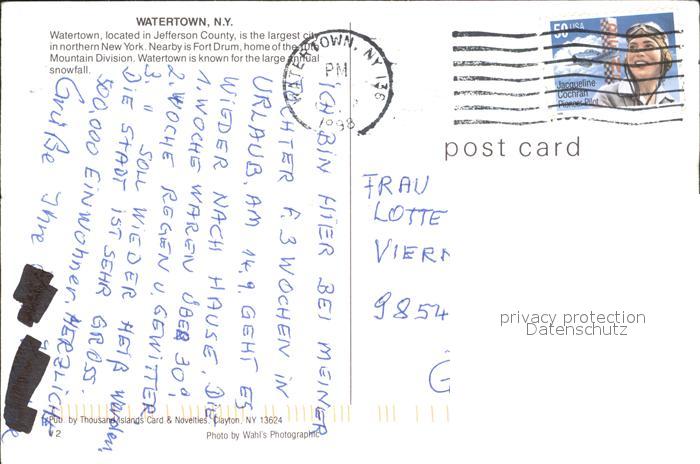 WATERTOWN, N.Y.
Watertown, located in Jefferson County, is the largest city
in northern New York. Nearby is Fort Drum, home of the 10th
Mountain Division. Watertown is known for the large annual
snowfall.
WATERTOWN, NY 136
PM
1998
50 USA
Jacqueline
Cochran
Pioneer Pilot
post card
ICH BIN HIER BEI MEINER
TOCHTER F. 3 WOCHEN IN
URLAUB. AM 14.9. GEHT ES
WIEDER NACH HAUSE. DIE
1. WOCHE WAREN ÜBER 30°!
2. WOCHE REGEN U. GEWITTER
3. " SOLL WIEDER HEIß werden.
DIE STADT IST SEHR GROSS.
500,000 EINWOHNER. HERZLICHE
Grüße Ihre
FRAU
LOTTE
VIERN
9854
G
privacy protection
Datenschutz
Pub. by Thousand Islands Card & Novelties, Clayton, NY 13624
Photo by Wahl's Photographic